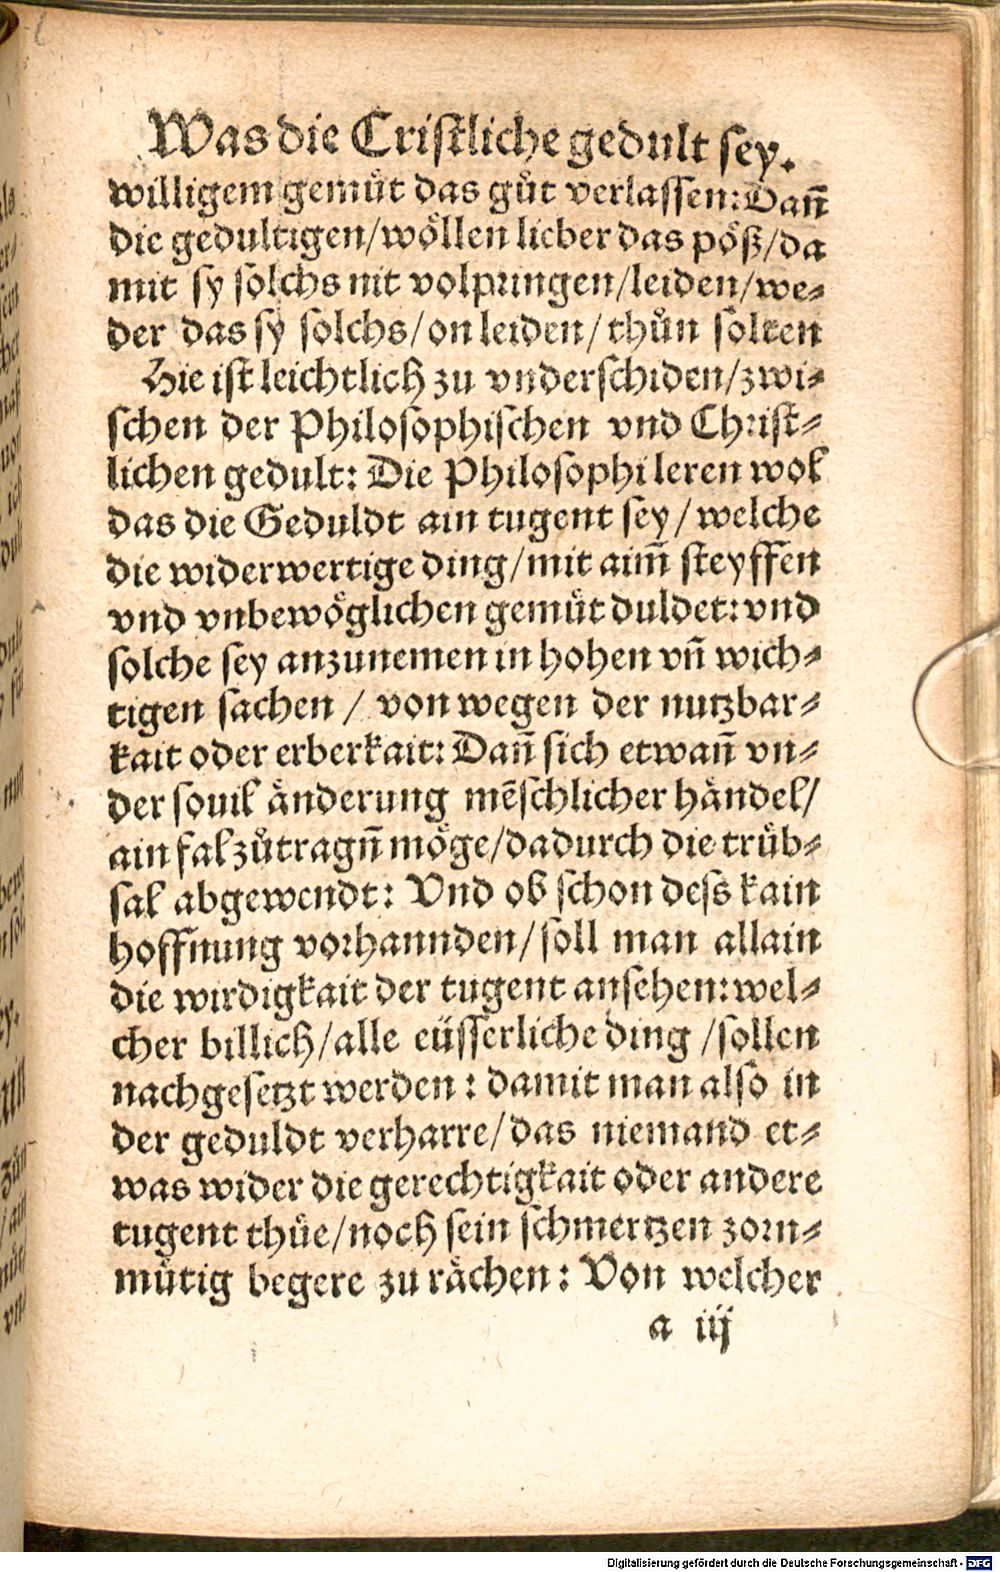 Was die Cristliche gedult sey.
willigem gemüt das gůt verlassen: Dañ
die gedultigen/wöllen lieber das pöß/da
mit sy solchs nit volpringen/leiden/we⸗
der das sy solchs/on leiden/thůn solten
Hie ist leichtlich zu vnderschiden/zwi⸗
schen der Philosophischen vnd Christ⸗
lichen gedult: Die Philosophi leren wol
das die Geduldt ain tugent sey/welche
die widerwertige ding/mit aim̃ steyffen
vnd vnbewöglichen gemüt duldet: vnd
solche sey anzunemen in hohen vñ wich⸗
tigen sachen / von wegen der nutzbar⸗
kait oder erberkait: Dañ sich etwañ vn⸗
der souil änderung mẽschlicher händel/
ain fal zůtragñ möge/dadurch die trüb⸗
sal abgewendt: Vnd ob schon dess kain
hoffnung vorhannden/soll man allain
die wirdigkait der tugent ansehen: wel⸗
cher billich/alle eüsserliche ding /sollen
nachgesetzt werden: damit man also in
der geduldt verharre/das niemand et⸗
was wider die gerechtigkait oder andere
tugent thüe/noch sein schmertzen zorn⸗
mütig begere zu rächen: Von welcher
a iij
Digitalisierung gefördert durch die Deutsche Forschungsgemeinschaft - DFG